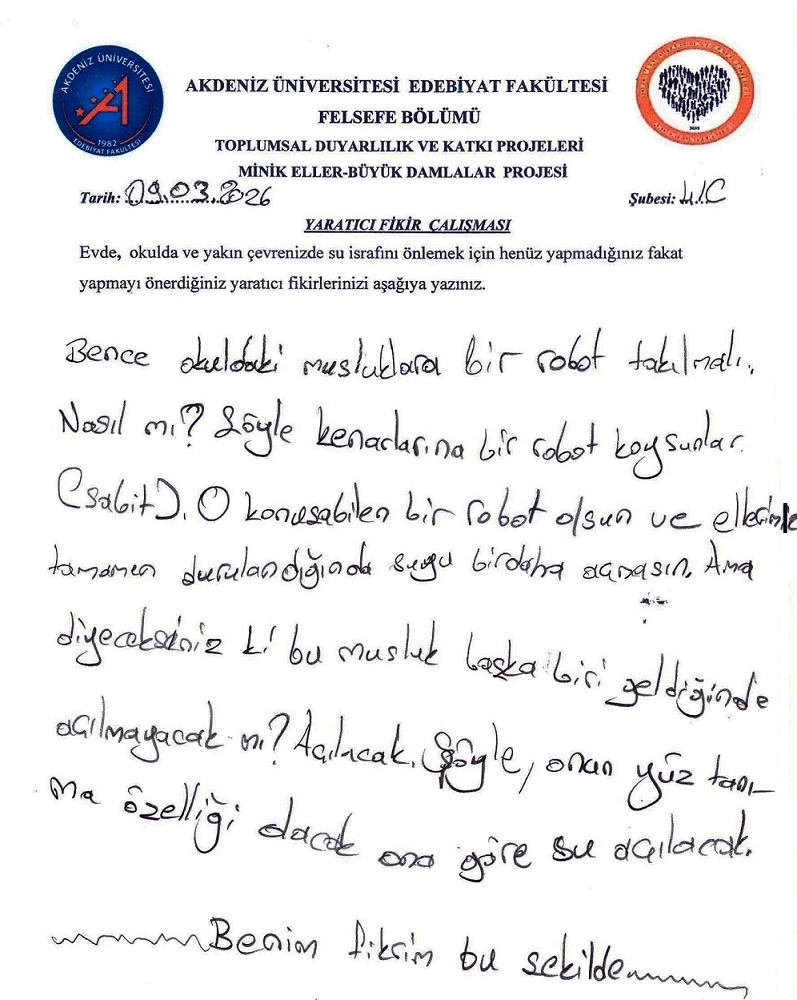 AKDENİZ ÜNİVERSİTESİ
1982
EDEBİYAT FAKÜLTESİ
TOPLUMSAL DUYARLILIK VE KATKI PROJELERİ
AKDENİZ ÜNİVERSİTESİ
AKDENİZ ÜNİVERSİTESİ EDEBİYAT FAKÜLTESİ
FELSEFE BÖLÜMÜ
TOPLUMSAL DUYARLILIK VE KATKI PROJELERİ
MİNİK ELLER-BÜYÜK DAMLALAR PROJESİ
Tarih: 09.03.2026 Şubesi: 4/C
YARATICI FİKİR ÇALIŞMASI
Evde, okulda ve yakın çevrenizde su israfını önlemek için henüz yapmadığınız fakat
yapmayı önerdiğiniz yaratıcı fikirlerinizi aşağıya yazınız.
Bence okuldaki musluklara bir robot takılmalı.
Nasıl mı? Şöyle kenarlarına bir robot koysunlar.
(sabit). O konuşabilen bir robot olsun ve ellerimle
tamamen durulandığında suyu birdaha açmasın. Ama
diyeceksiniz ki bu musluk başka biri geldiğinde
açılmayacak mı? Açılacak. Şöyle, onun yüz tanı-
ma özelliği olacak ona göre su açılacak.
Benim fikrim bu şekilde